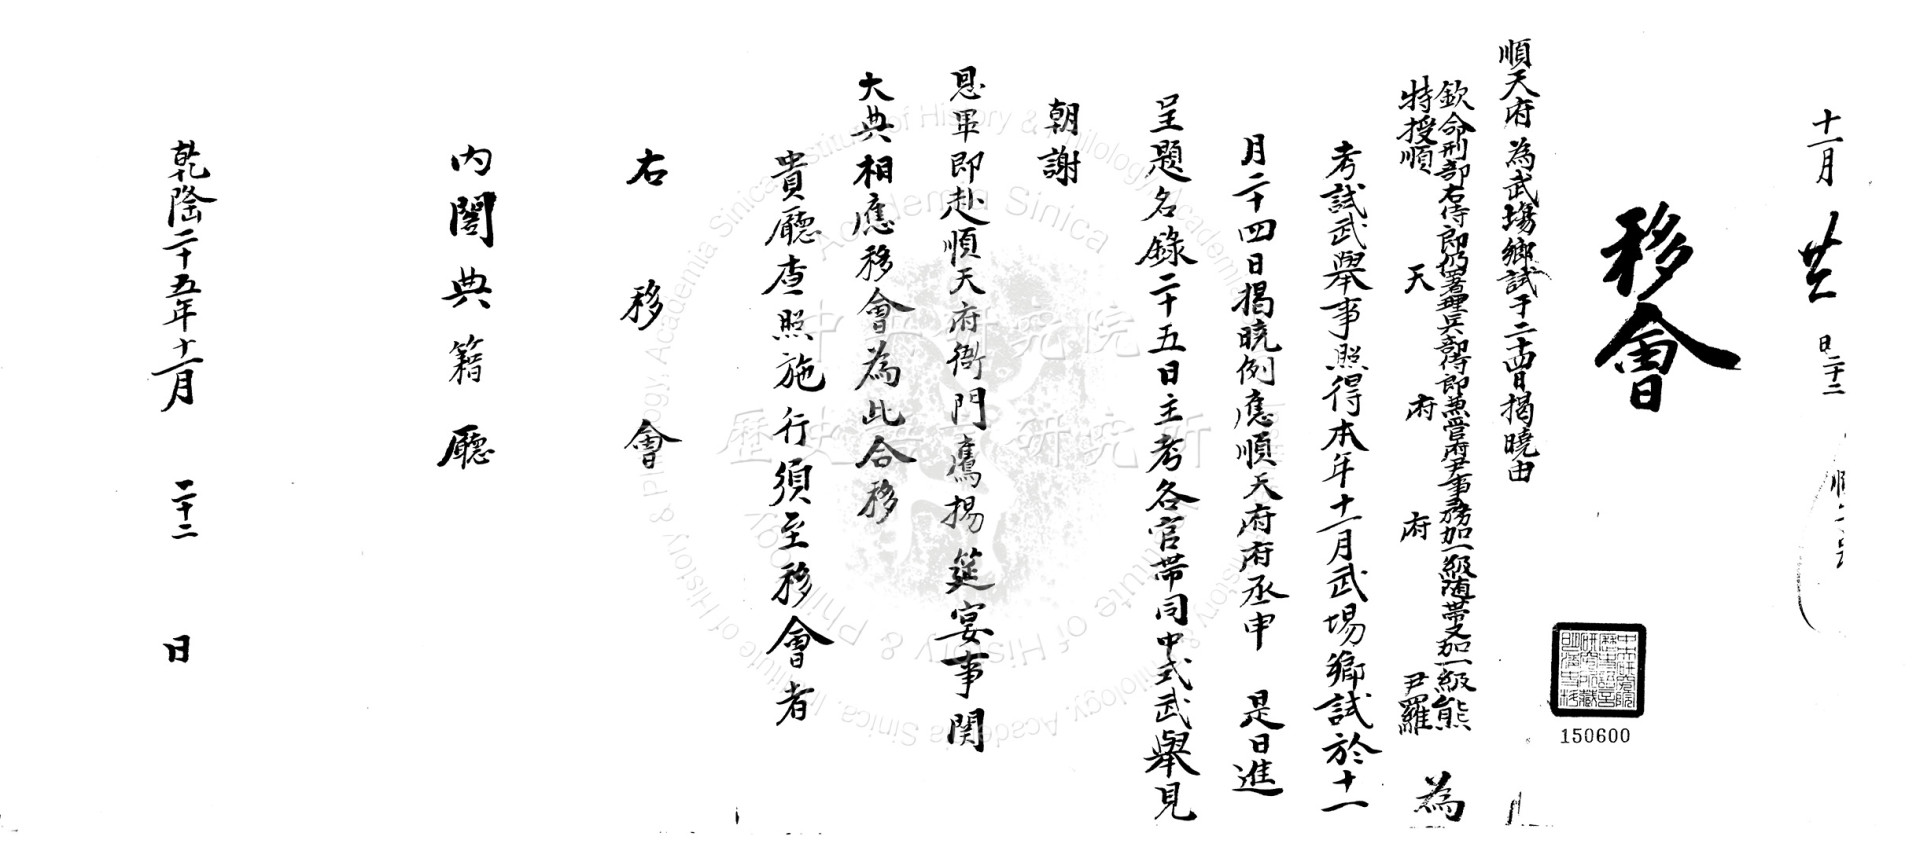 十一月 廿 日 二十二
移會
順天府為武場鄉試于二十四日揭曉由
欽命刑部右侍郎仍署理兵部侍郎兼管府尹事務加一級隨帶又加一級熊
特授順天府府尹羅 為
考試武舉事照得本年十一月武場鄉試於十一
月二十四日揭曉例應順天府府丞申 是日進
呈題名錄二十五日主考各官帶同中式武舉見
朝謝
恩畢即赴順天府衙門鷹揚筵宴事関
大典相應移會為此合移
貴廳查照施行須至移會者
右移會
內閣典籍廳
乾隆二十五年十一月 二十二 日
150600
中央研究院
歷史語言研究所
Academia Sinica
Institute of History & Philology, Academia Sinica